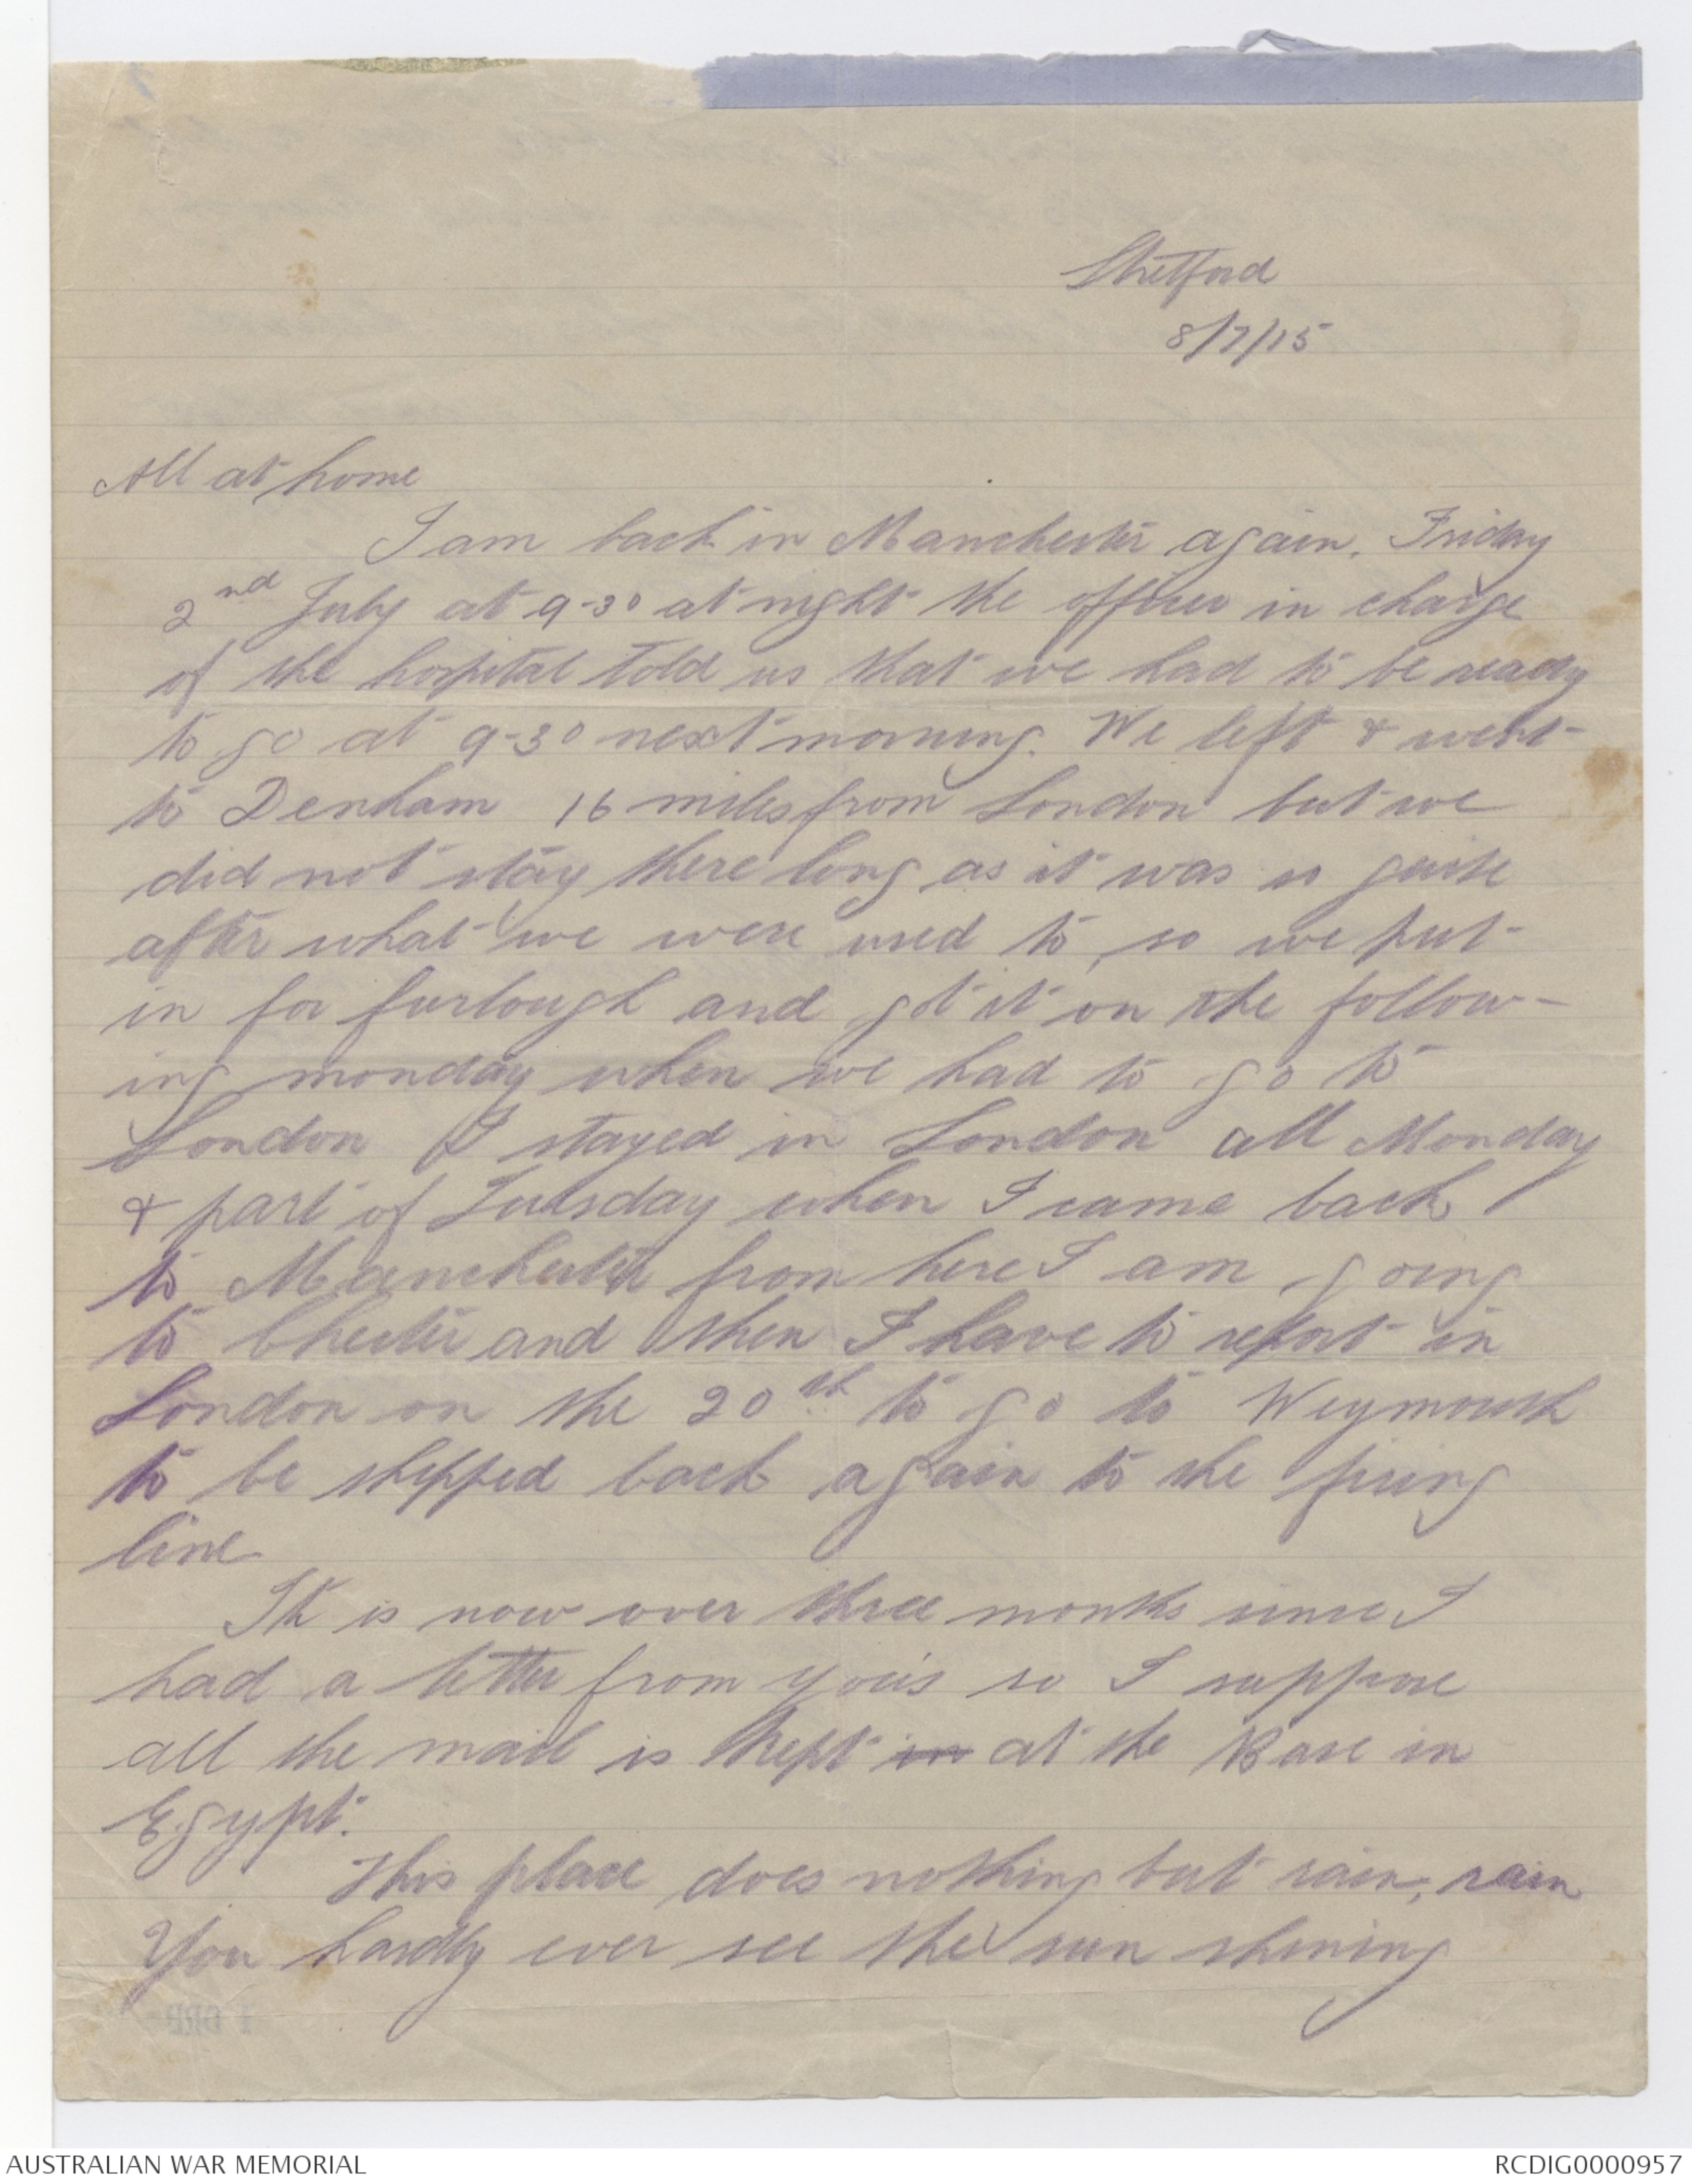 Stretford
8/7/15
All at home
I am back in Manchester again. Friday
2nd July at 9-30 at night the officer in charge
of the hospital told us that we had to be ready
to go at 9-30 next morning. We left & went
to Denham 16 miles from London but we
did not stay there long as it was so quite
after what we were used to, so we put
in for furlough and got it on the follow-
ing monday when we had to go to
London I stayed in London all Monday
& part of Tuesday when I came back
to Manchester from here I am going
to Chester and then I have to report in
London on the 20th to go to Weymouth
to be shipped back again to the firing
line
It is now over three months since I
had a letter from yous so I suppose
all the mail is kept in at the Base in
Egypt.
This place does nothing but rain, rain
You hardly ever see the sun shining
AUSTRALIAN WAR MEMORIAL
RCDIG0000957